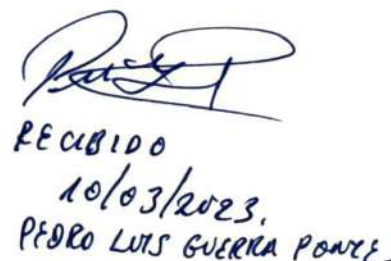 RECIBIDO
10/03/2023.
PEDRO LUIS GUERRA PONCE.